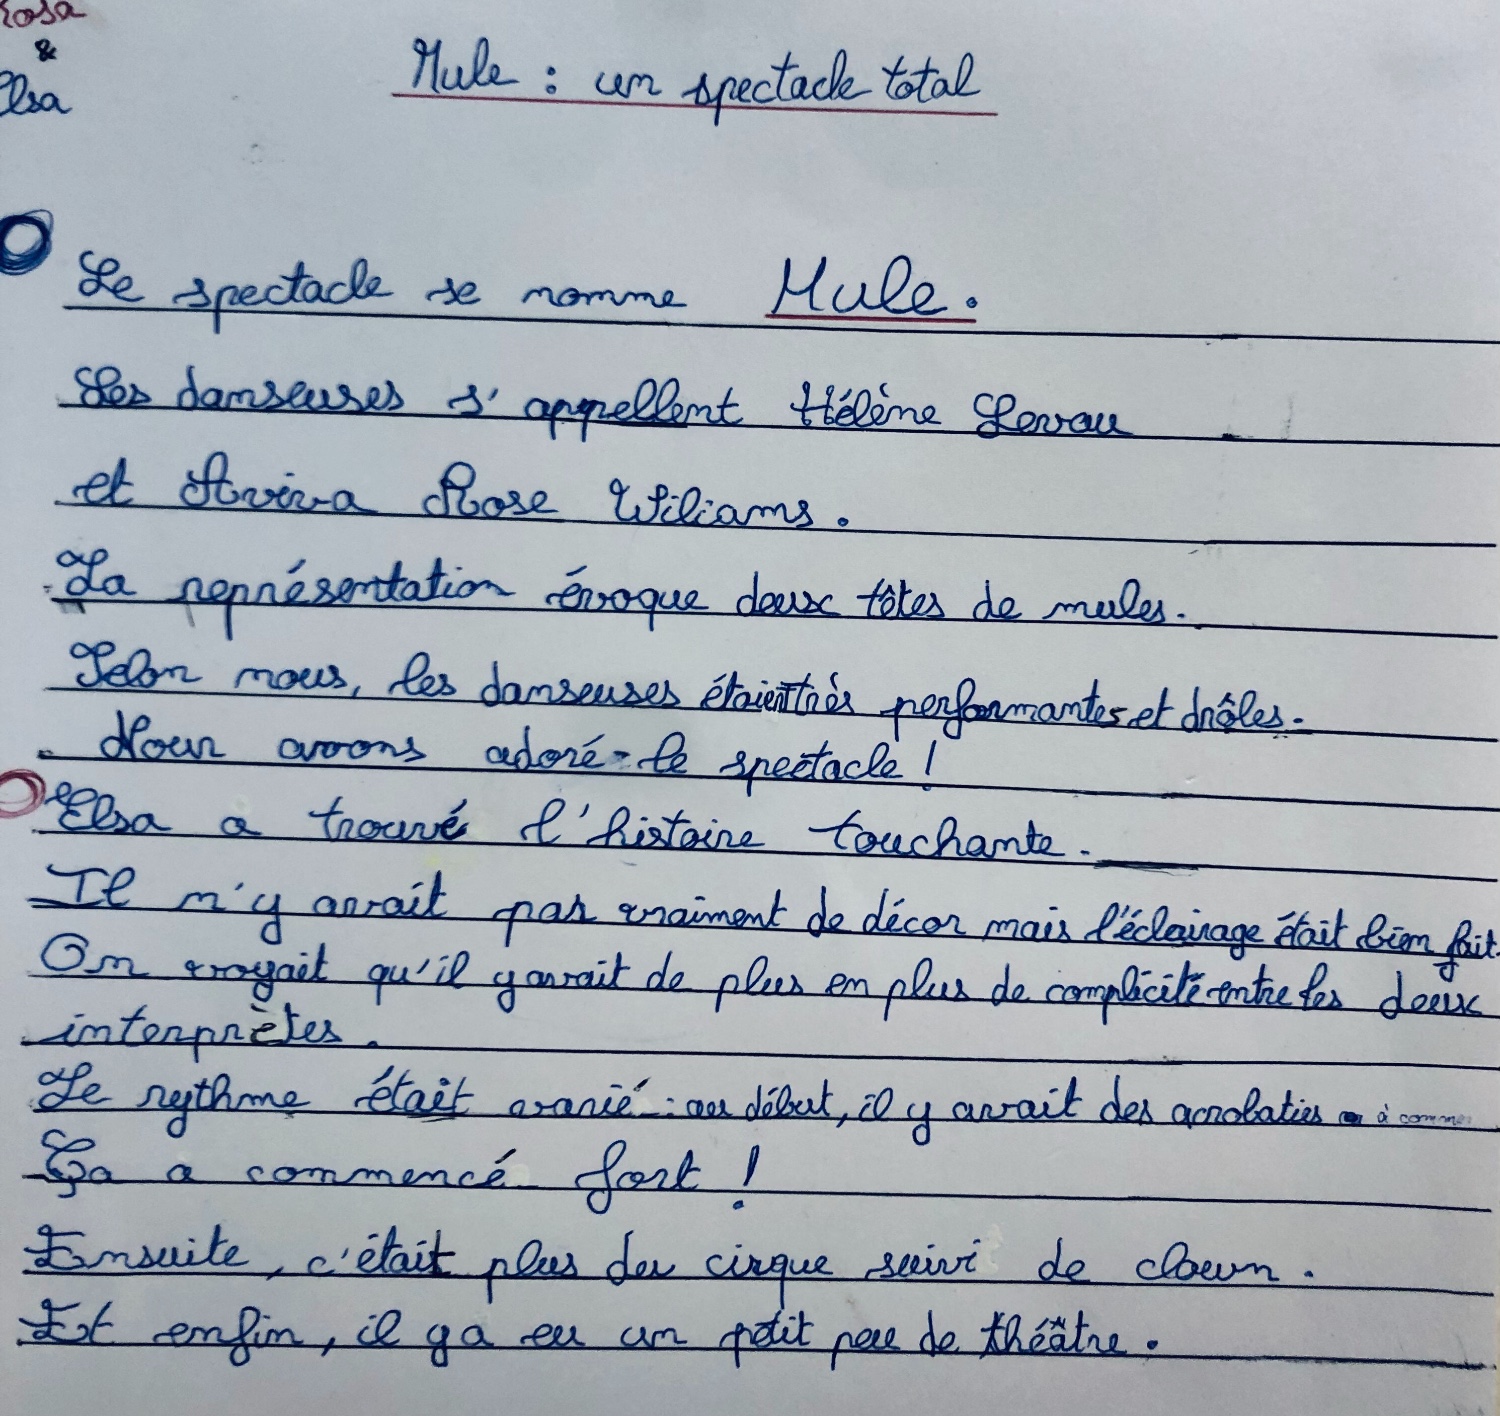 Rosa
&
Elsa
Mule : un spectacle total
Le spectacle se nomme Mule.
Les danseuses s'appellent Hélène Levau
et Aviva Rose Wiliams.
La représentation évoque deux têtes de mules.
Selon nous, les danseuses étaient très performantes et drôles.
Nous avons adoré le spectacle !
Elsa a trouvé l'histoire touchante.
Il n'y avait pas vraiment de décor mais l'éclairage était bien fait.
On voyait qu'il y avait de plus en plus de complicité entre les deux
interprètes.
Le rythme était varié : au début, il y avait des acrobaties
Ça a commencé fort !
Ensuite, c'était plus du cirque suivi de clown.
Et enfin, il y a eu un petit peu de théâtre.